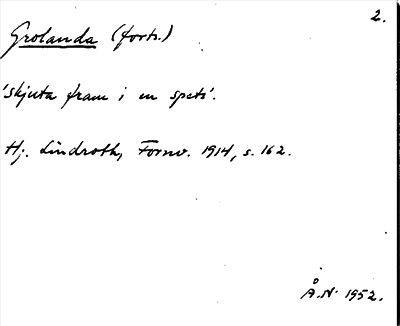 2.
Grolanda (forts.)
'skjuta fram i en spets'.
Hj. Lindroth, Fornv. 1914, s. 162.
Å.N. 1952.